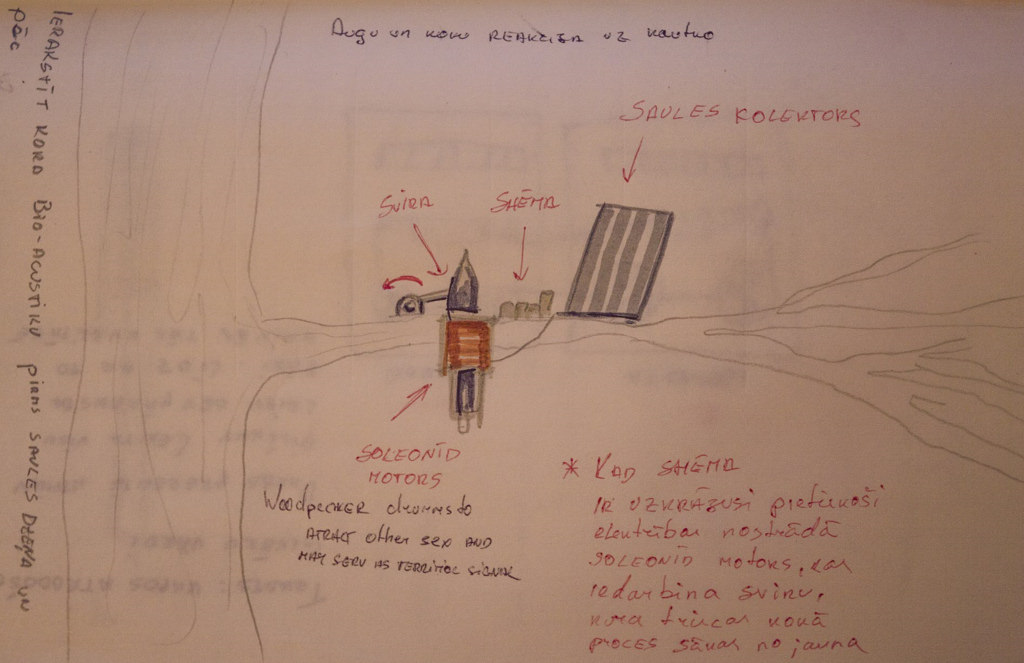 Augu un koku REAKCIJA uz
SAULES KOLEKTORS
SVIRA
SHĒMA
SOLEONĪD
MOTORS
Woodpecker drumms to
ATRACT other sex AND
MAY SERV AS TERRITOR SIGNAL
* KAD SHĒMA
IR UZKRĀJUSI pietiekoši
elektrības nostrādā
SOLEONĪD MOTORS, kas
iedarbina sviru,
kura trīcas kokā
PROCES sākas no jauna
IERAKSTĪT KOKU BIO-ACUSTIKU pirms SAULES DIEŅA UN
PĒC